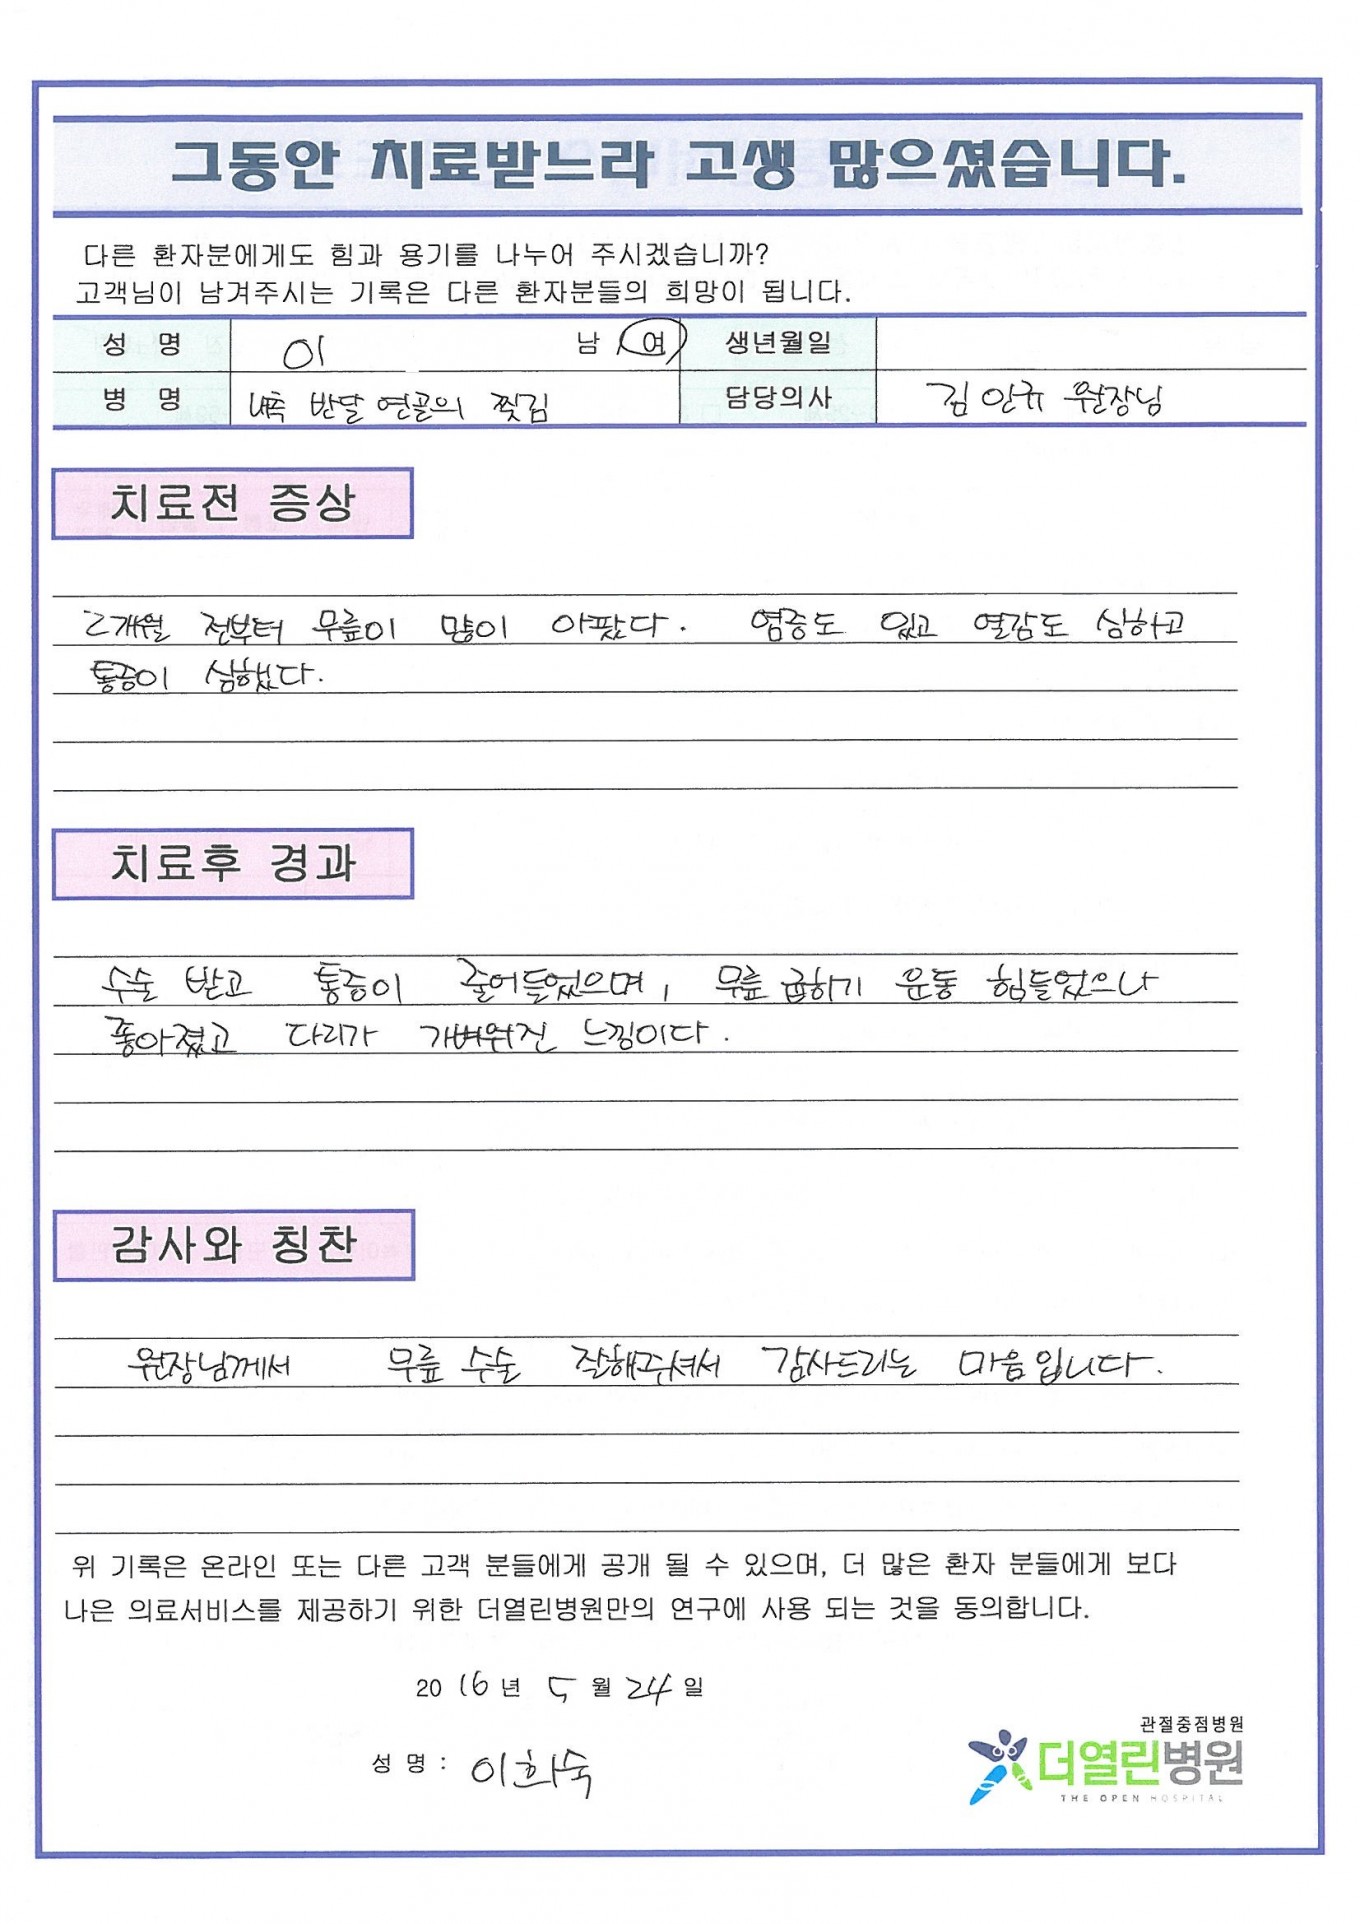 그동안 치료받느라 고생 많으셨습니다.
다른 환자분에게도 힘과 용기를 나누어 주시겠습니까?
고객님이 남겨주시는 기록은 다른 환자분들의 희망이 됩니다.
성 명 이 남 여 생년월일
병 명 내측 반달 연골의 찢김 담당의사 김안규 원장님
치료전 증상
2개월 전부터 무릎이 많이 아팠다. 염증도 있고 열감도 심하고
통증이 심했다.
치료후 경과
수술 받고 통증이 줄어들었으며, 무릎 굽하기 운동 힘들었으나
좋아졌고 다리가 가벼워진 느낌이다.
감사와 칭찬
원장님께서 무릎 수술 잘해주셔서 감사드리는 마음입니다.
위 기록은 온라인 또는 다른 고객 분들에게 공개 될 수 있으며, 더 많은 환자 분들에게 보다
나은 의료서비스를 제공하기 위한 더열린병원만의 연구에 사용 되는 것을 동의합니다.
2016년 5월 24일
관절중점병원
성 명 : 이화숙
더열린병원
THE OPEN HOSPITAL